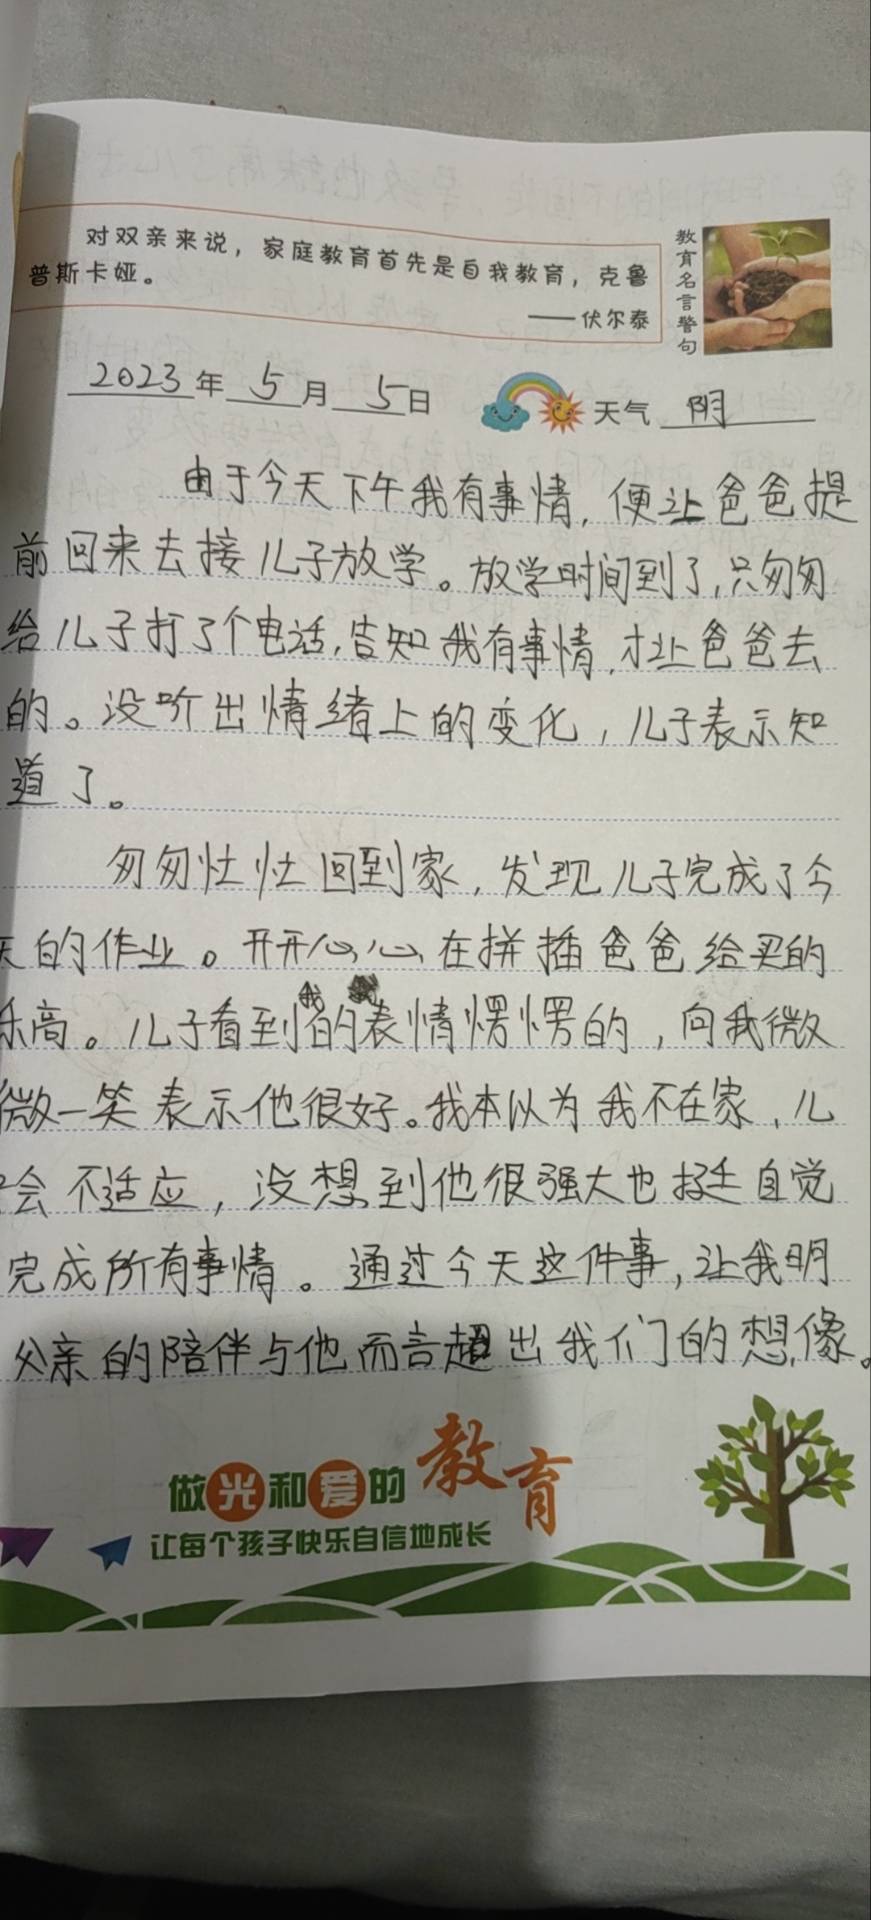 对双亲来说，家庭教育首先是自我教育，克鲁
普斯卡娅。
——伏尔泰
教育名言警句
2023年5月5日 天气 阴
由于今天下午我有事情，便让爸爸提
前回来去接儿子放学。放学时间到了，只匆匆
给儿子打了个电话，告知我有事情，才让爸爸去
的。没听出情绪上的变化，儿子表示知
道了。
匆匆忙忙回到家，发现儿子完成了今
天的作业。开开心心在拼插爸爸给买的
乐高。儿子看到我的表情愣愣的，向我微
微一笑表示他很好。我本以为我不在家，儿
子会不适应，没想到他很强大也挺自觉
完成所有事情。通过今天这件事，让我明
父亲的陪伴与他而言超出我们的想像。
做光和爱的教育
让每个孩子快乐自信地成长